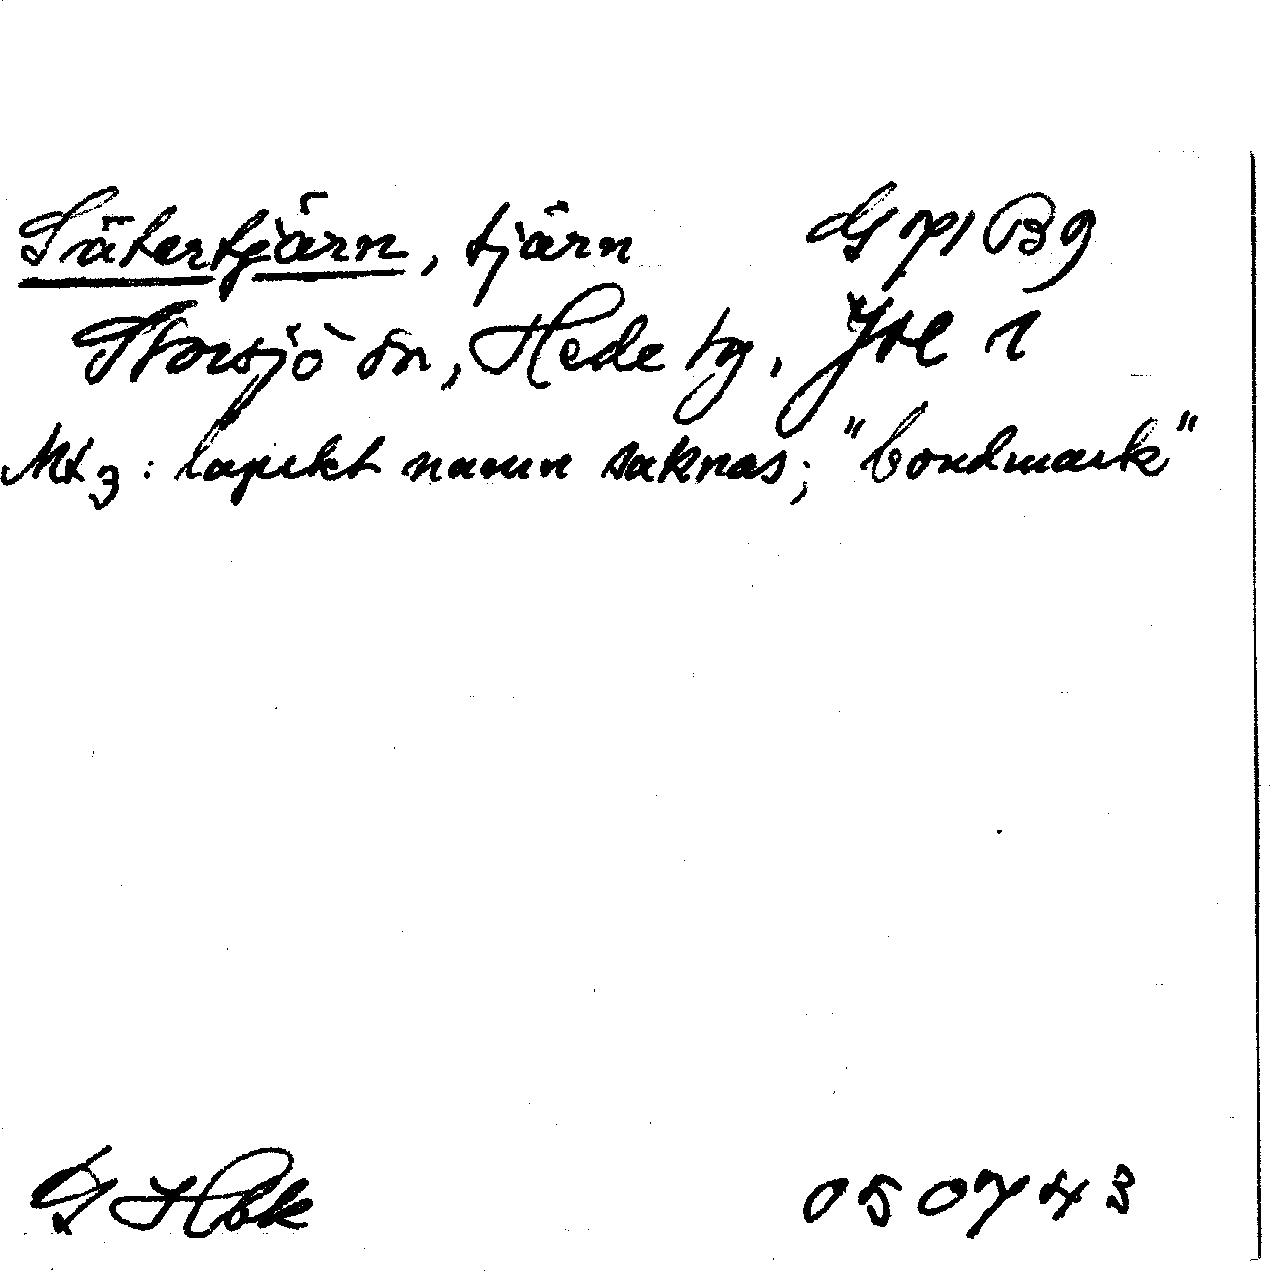 Sätertjärn, tjärn
Storsjö sn, Hede tg, Jtl
Mt3: lapskt namn saknas; "bondmark"
050743